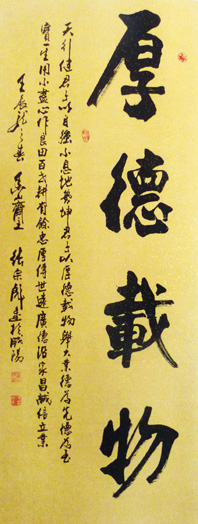 厚德載物
天行健君子以自强不息地勢坤君子以厚德載物舉大業德為先德為本
寶一生用不盡心作良田百世耕有餘忠厚傳世遠廣德沒家昌誠信立業
壬辰龍之春